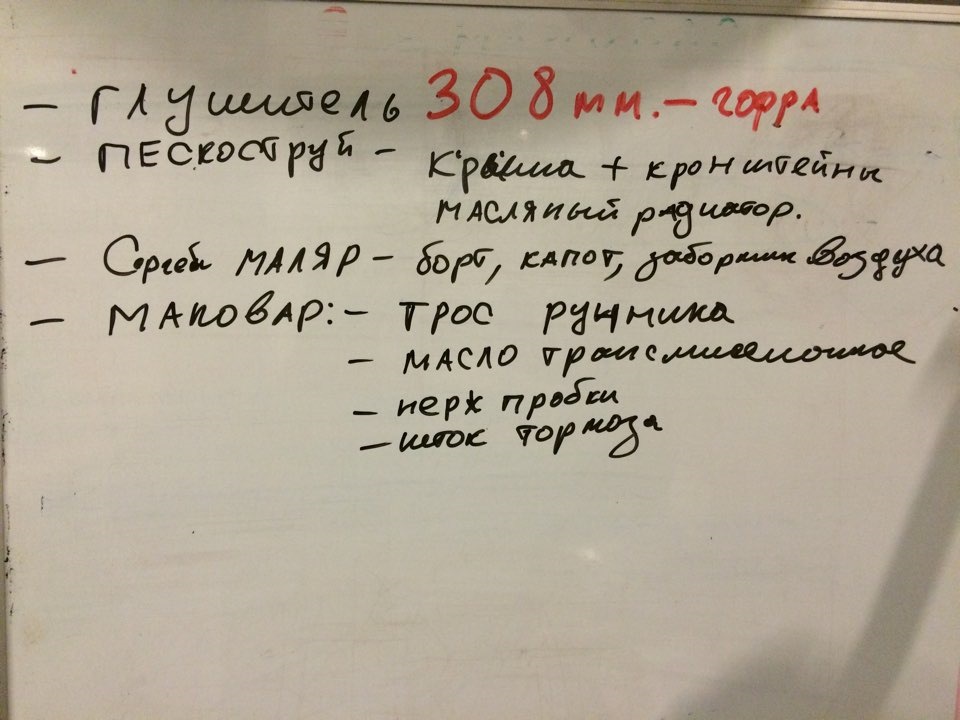 - ГЛУШИТЕЛЬ 308 мм. - ГОФРА
- ПЕСКОСТРУЙ - Крыша + кронштейны
масляный радиатор.
- Сергей МАЛЯР - борт, капот, заборник воздуха
- МАКОВАР: - ТРОС ручника
- МАСЛО трансмиссионное
- нерж пробки
- шток тормоза